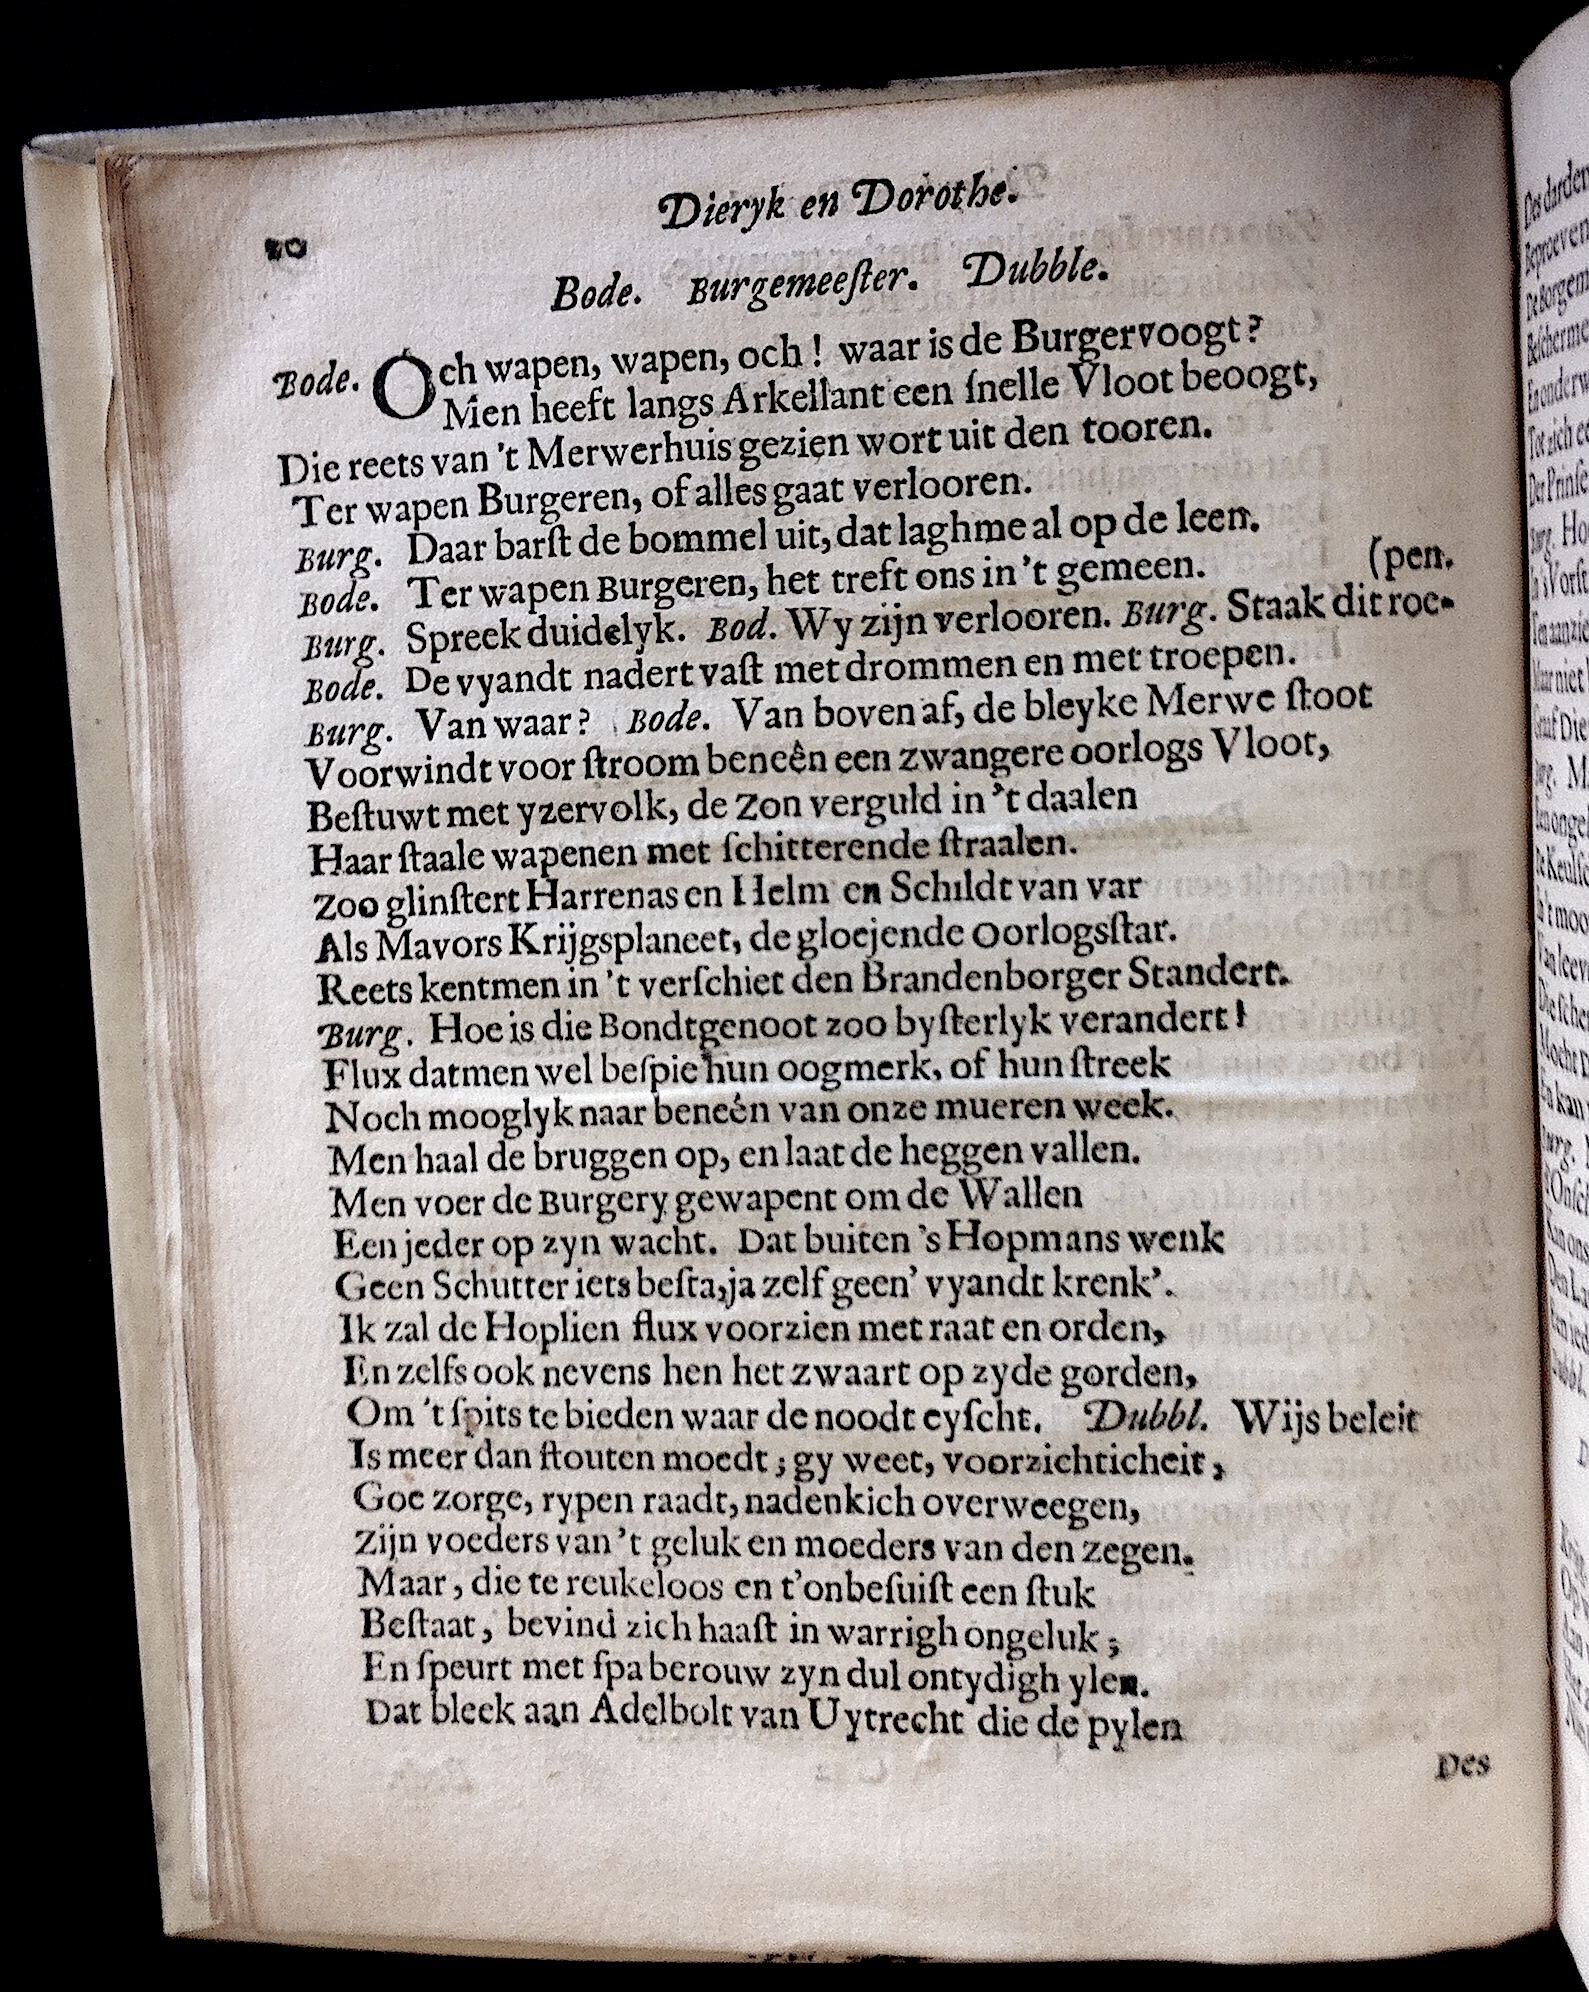 20
Dieryk en Dorothe.
Bode. Burgemeeſter. Dubble.
Bode. Och wapen, wapen, och! waar is de Burgervoogt?
Men heeft langs Arkellant een ſnelle Vloot beoogt,
Die reets van 't Merwerhuis gezien wort uit den tooren.
Ter wapen Burgeren, of alles gaat verlooren.
Burg. Daar barſt de bommel uit, dat laghme al op de leen.
Bode. Ter wapen Burgeren, het treft ons in 't gemeen.
(pen.
Burg. Spreek duidelyk. Bod. Wy zijn verlooren. Burg. Staak dit roe-
Bode. De vyandt nadert vaſt met drommen en met troepen.
Burg. Van waar? Bode. Van boven af, de bleyke Merwe ſtoot
Voorwindt voor ſtroom beneên een zwangere oorlogs Vloot,
Beſtuwt met yzervolk, de Zon verguld in 't daalen
Haar ſtaale wapenen met ſchitterende ſtraalen.
Zoo glinſtert Harrenas en Helm en Schildt van var
Als Mavors Krijgsplaneet, de gloejende Oorlogsſtar.
Reets kentmen in 't verſchiet den Brandenborger Standert.
Burg. Hoe is die Bondtgenoot zoo byſterlyk verandert!
Flux datmen wel beſpie hun oogmerk, of hun ſtreek
Noch mooglyk naar beneên van onze mueren week.
Men haal de bruggen op, en laat de heggen vallen.
Men voer de Burgery gewapent om de Wallen
Een jeder op zyn wacht. Dat buiten 's Hopmans wenk
Geen Schutter iets beſta, ja zelf geen' vyandt krenk'.
Ik zal de Hoplien flux voorzien met raat en orden,
En zelfs ook nevens hen het zwaart op zyde gorden,
Om 't ſpits te bieden waar de noodt eyſcht. Dubbl. Wijs beleit
Is meer dan ſtouten moedt; gy weet, voorzichticheit,
Goe zorge, rypen raadt, nadenkich overweegen,
Zijn voeders van 't geluk en moeders van den zegen.
Maar, die te reukeloos en t'onbeſuiſt een ſtuk
Beſtaat, bevind zich haaſt in warrigh ongeluk;
En ſpeurt met ſpa berouw zyn dul ontydigh ylen.
Dat bleek aan Adelbolt van Uytrecht die de pylen
Des